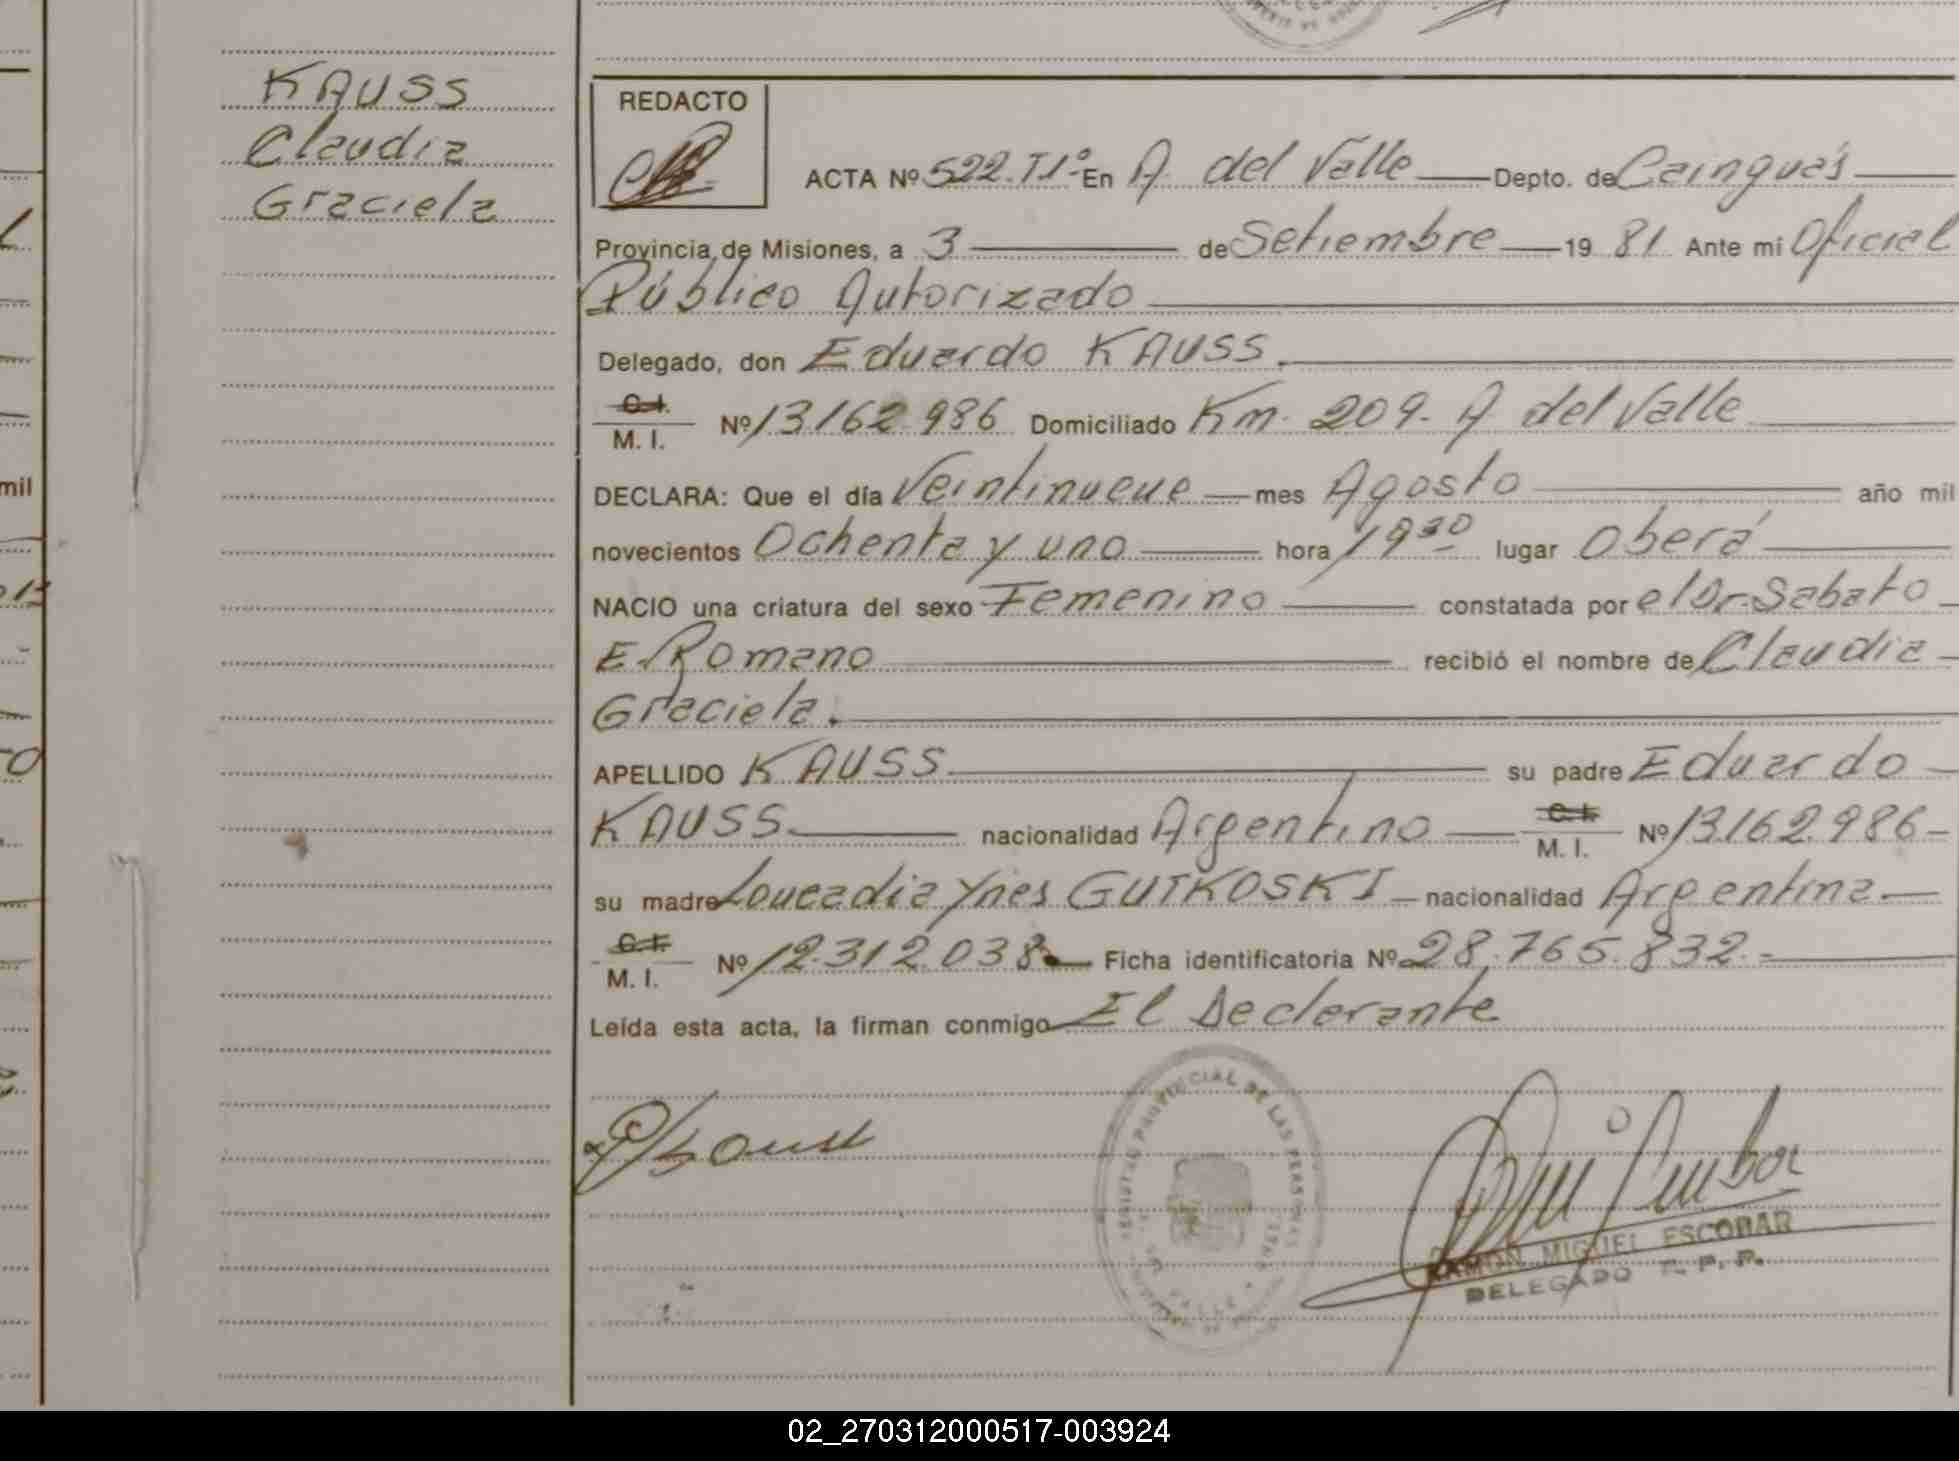 KAUSS
Claudia
Graciela
REDACTO
ACTA Nº 522. T1º En A. del Valle Depto. de Cainguás
Provincia de Misiones, a 3 de Setiembre 19 81 Ante mí Oficial
Público Autorizado
Delegado, don Eduardo KAUSS.
C.I.
M. I. Nº 13.162.986 Domiciliado Km. 209. A del Valle
DECLARA: Que el día Veintinueve mes Agosto año mil
novecientos Ochenta y uno hora 19 30 lugar Oberá
NACIO una criatura del sexo Femenino constatada por el Dr. Sabato
E. Romano recibió el nombre de Claudia
Graciela.
APELLIDO KAUSS su padre Eduardo
KAUSS nacionalidad Argentino C.I. M. I. Nº 13.162.986
su madre Loucadia Ynes GUTKOSKI nacionalidad Argentina
C.I.
M. I. Nº 12.312.038 Ficha identificatoria Nº 28.765.832.
Leída esta acta, la firman conmigo El Declarante
REGISTRO PROVINCIAL DE LAS PERSONAS
RAMON MIGUEL ESCOBAR
DELEGADO R. P. P.
mil
02_270312000517-003924